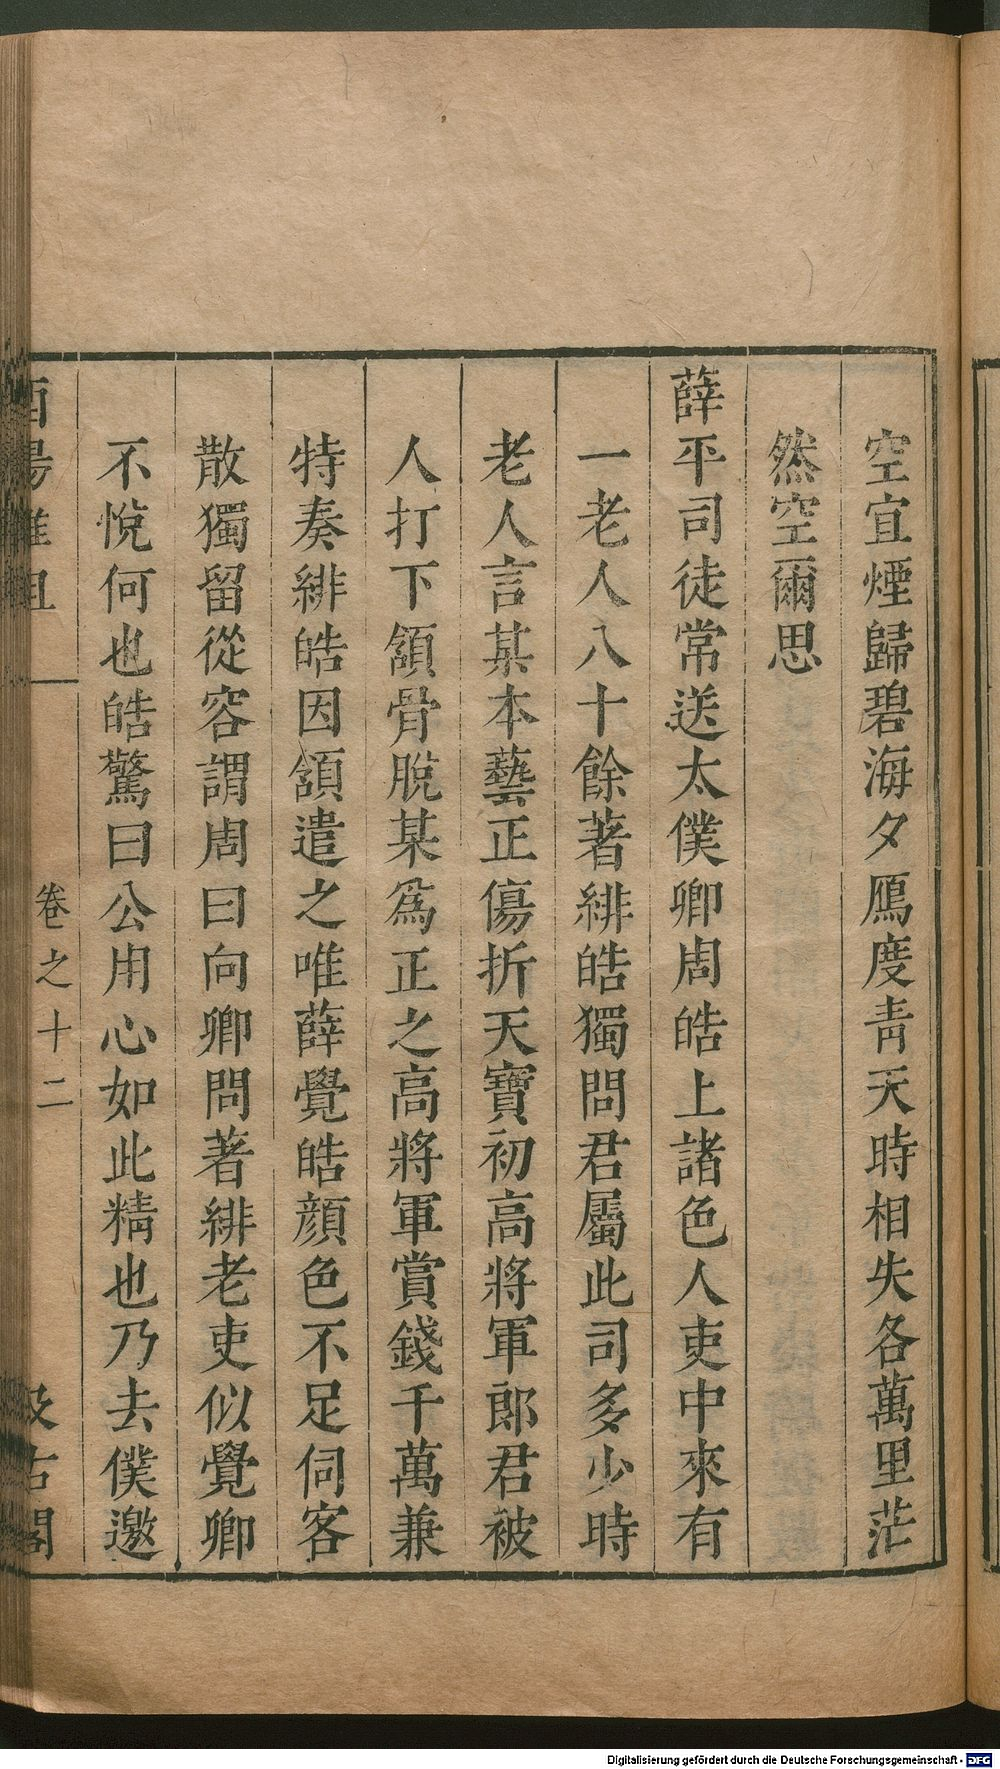 空宜煙歸碧海夕鴈度靑天時相失各萬里茫
然空爾思
薛平司徒常送太僕卿周皓上諸色人吏中來有
一老人八十餘著緋皓獨問君屬此司多少時
老人言某本藝正傷折天寶初高將軍郎君被
人打下頷骨脫某爲正之高將軍賞錢千萬兼
特奏緋皓因頷遣之唯薛覺皓顏色不足伺客
散獨留從容謂周曰向卿問著緋老吏似覺卿
不悅何也皓驚曰公用心如此精也乃去僕邀
酉陽雜俎
卷之十二
汲古閣
Digitalisierung gefördert durch die Deutsche Forschungsgemeinschaft - DFG